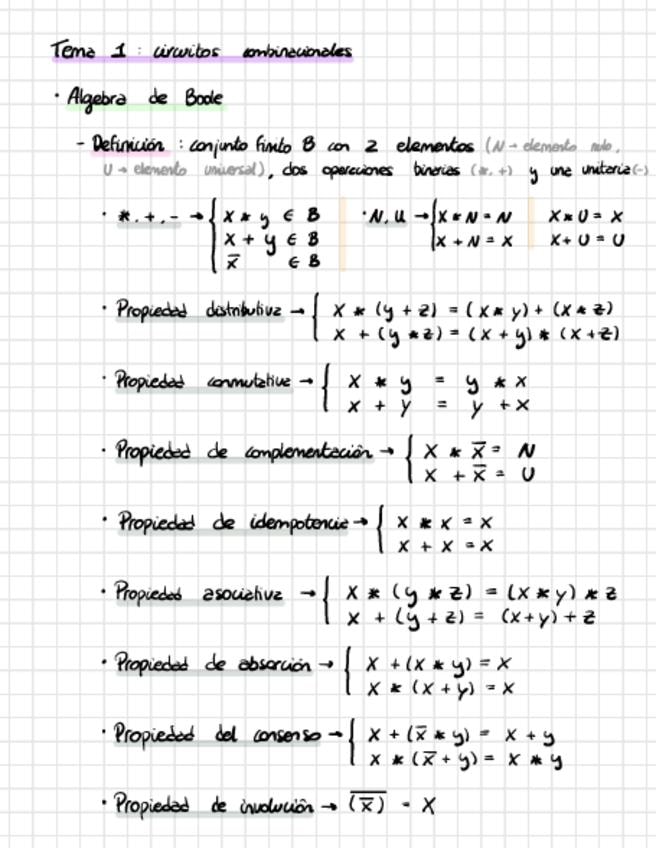 Tema 1 : circuitos combinacionales
· Algebra de Boole
- Definición : conjunto finito B con 2 elementos (N → elemento nulo,
U → elemento universal), dos operaciones binarias (*, +) y una unitaria (-)
· *, +, - → { x * y ∈ B
x + y ∈ B
x̅ ∈ B
· N, U → { x * N = N x * U = x
x + N = x x + U = U
· Propiedad distributiva → { x * (y + z) = (x * y) + (x * z)
x + (y * z) = (x + y) * (x + z)
· Propiedad conmutativa → { x * y = y * x
x + y = y + x
· Propiedad de complementación → { x * x̅ = N
x + x̅ = U
· Propiedad de idempotencia → { x * x = x
x + x = x
· Propiedad asociativa → { x * (y * z) = (x * y) * z
x + (y + z) = (x + y) + z
· Propiedad de absorción → { x + (x * y) = x
x * (x + y) = x
· Propiedad del consenso → { x + (x̅ * y) = x + y
x * (x̅ + y) = x * y
· Propiedad de involución → (x̅)̅ = x